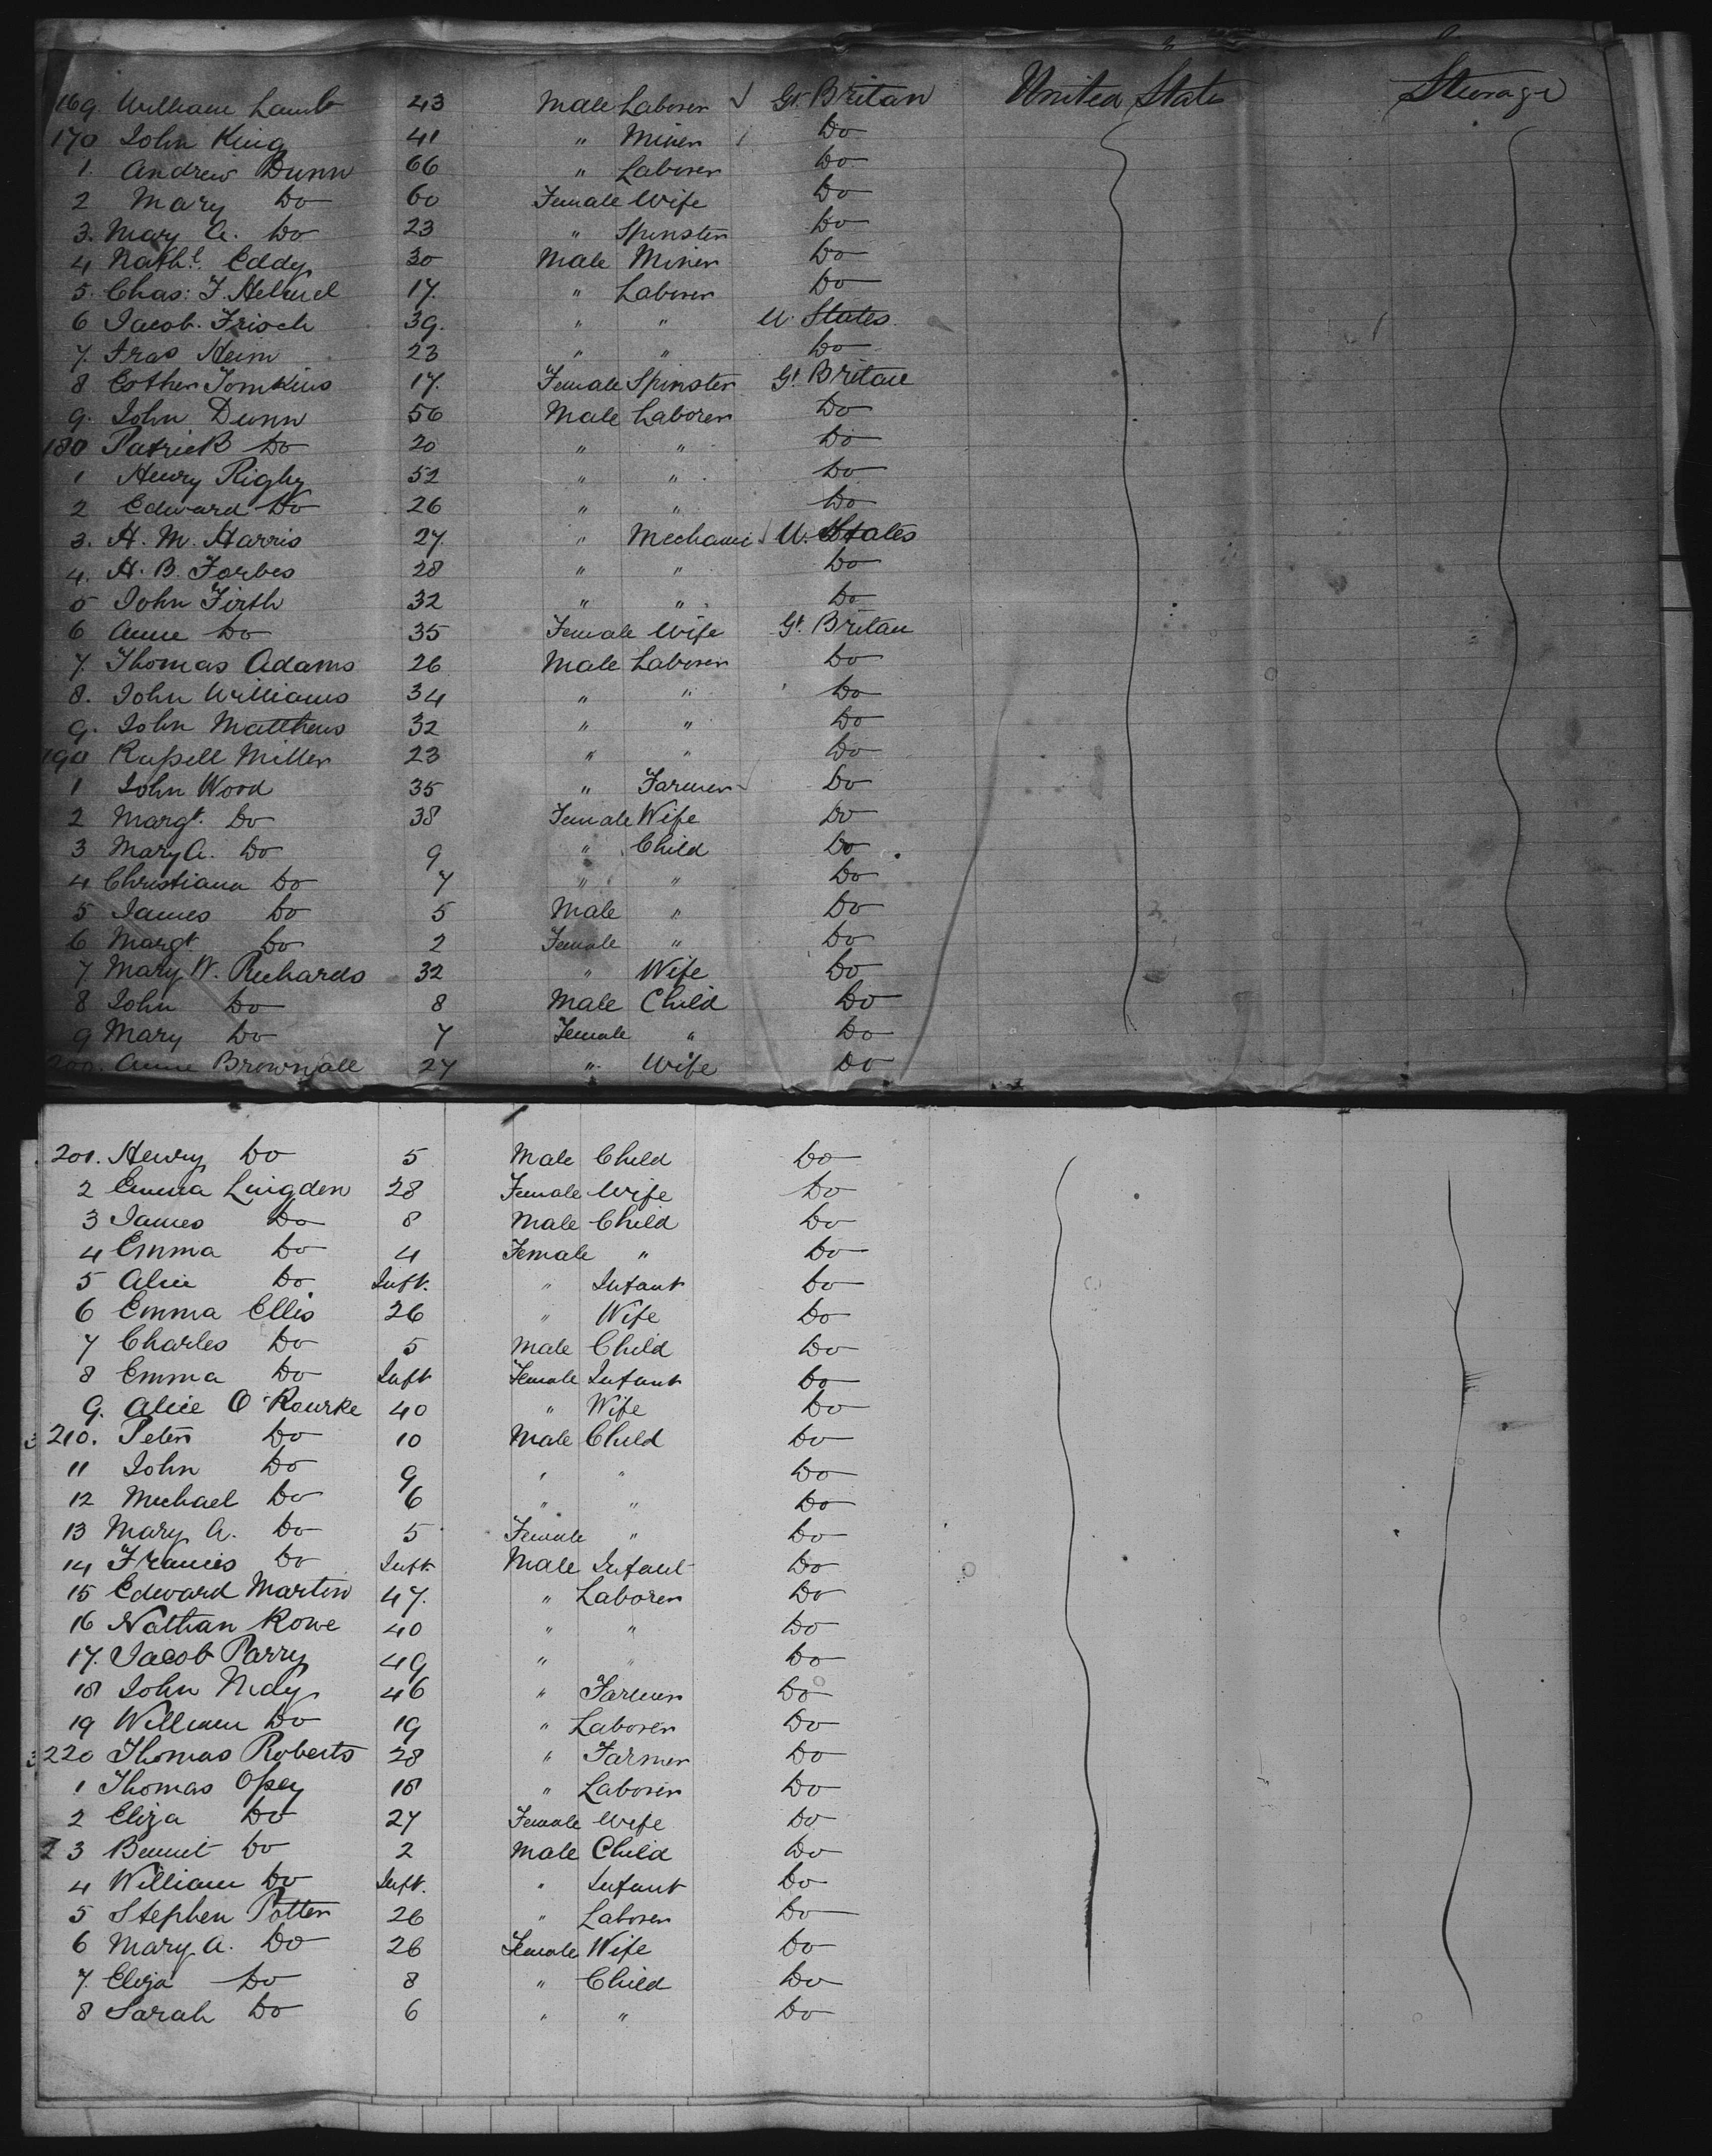 169. William Lamb 43 Male Laborer √ Gt. Britan United State Steerage
170 John King 41 " Miner Do
1. Andrew Dunn 66 " Laborer Do
2 Mary Do 60 Female Wife Do
3. Mary A. Do 23 " Spinster Do
4 Nathl. Eddy 30 Male Miner Do
5. Chas: F. 17. " Laborer Do
6 Jacob Frisch 39. " " U. States.
7. Fras Heim 23 " " Do
8 Esther Tomkins 17. Female Spinster Gt. Britan
9. John Dunn 56 Male Laborer Do
180 Patrick Do 20 " " Do
1 Henry Rigby 52 " " Do
2 Edward Do 26 " " Do
3. H. M. Harris 27. " Mechanic √ U. States
4. H. B. Forbes 28 " " Do
5 John Firth 32 " " Do
6 Anne Do 35 Female Wife Gt. Britan
7. Thomas Adams 26 Male Laborer Do
8. John Williams 34 " " Do
9. John Matthews 32 " " Do
190 Russell Miller 23 " " Do
1 John Wood 35 " Farmer Do
2 Margt. Do 38 Female Wife Do
3 Mary A. Do 9 " Child Do
4 Christiana Do 7 " " Do
5 James Do 5 Male " Do
6 Margt. Do 2 Female " Do
7 Mary W. Richards 32 " Wife Do
8 John Do 8 Male Child Do
9 Mary Do 7 Female " Do
200. Anne 27 " Wife Do
201. Henry Do 5 Male Child Do
2 Emma Lingden 28 Female Wife Do
3 James Do 8 Male Child Do
4 Emma Do 4 Female " Do
5 Alice Do Inft. " Infant Do
6 Emma Ellis 26 " Wife Do
7 Charles Do 5 Male Child Do
8 Emma Do Inft Female Infant Do
9. Alice O'Rourke 40 " Wife Do
210. Peter Do 10 Male Child Do
11 John Do 9 " " Do
12 Michael Do 6 " " Do
13 Mary A. Do 5 Female " Do
14 Francis Do Inft. Male Infant Do
15 Edward Martin 47. " Laborer Do
16 Nathan Rowe 40 " " Do
17. Jacob Parry 49 " " Do
18 John 46 " Farmer Do
19 William Do 19 " Laborer Do
220 Thomas Roberts 28 " Farmer Do
1 Thomas Opey 18 " Laborer Do
2 Eliza Do 27 Female Wife Do
3 Bennet Do 2 Male Child Do
4 William Do Inft. " Infant Do
5 Stephen Potter 26 " Laborer Do
6 Mary A. Do 26 Female Wife Do
7. Eliza Do 8 " Child Do
8 Sarah Do 6 " " Do